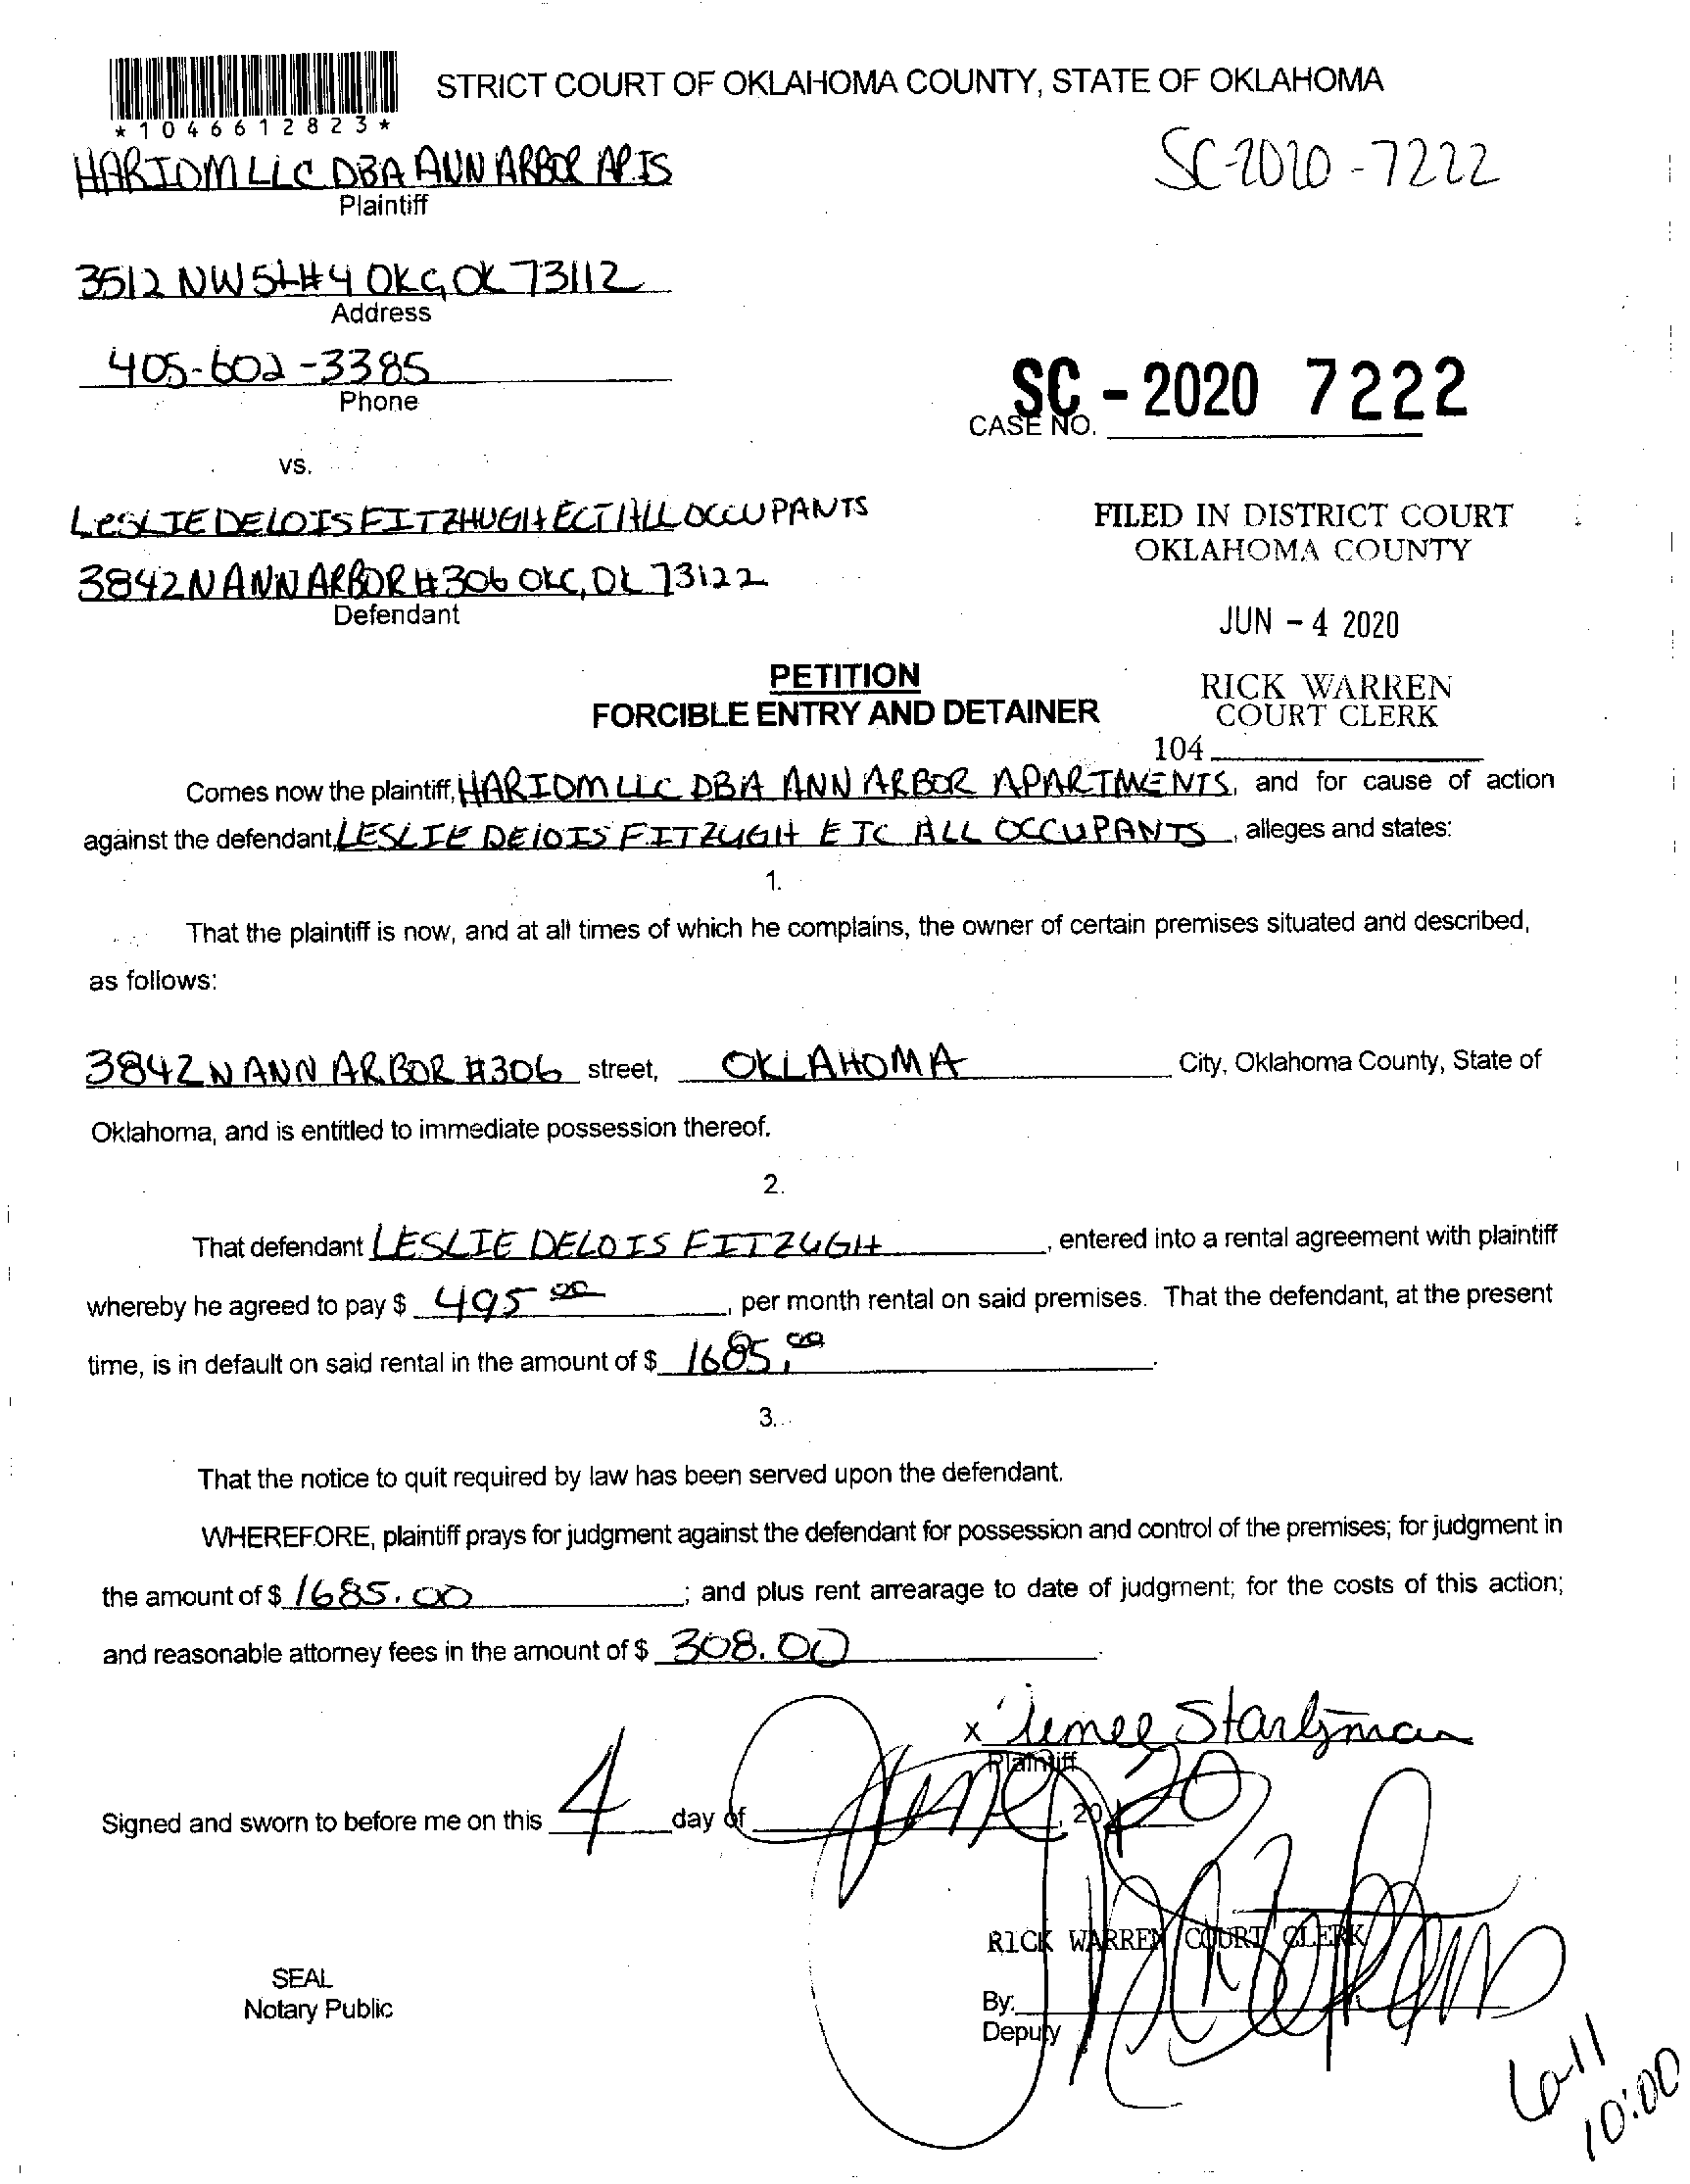 STRICT COURT OF OKLAHOMA COUNTY, STATE OF OKLAHOMA
*1046612823*
HARIOM LLC DBA ANN ARBOR APTS
SC-2020-7222
Plaintiff
3512 NW 5 #4 OKC, OK 73112
Address
405-602-3385
Phone
SC - 2020 7222
CASE NO.
vs.
LESLIE DELOIS FITZHUGH ECT ALL OCCUPANTS
FILED IN DISTRICT COURT
OKLAHOMA COUNTY
3842 N ANN ARBOR #306 OKC, OK 73122
Defendant
JUN - 4 2020
PETITION
FORCIBLE ENTRY AND DETAINER
RICK WARREN
COURT CLERK
104
Comes now the plaintiff, HARIOM LLC DBA ANN ARBOR APARTMENTS, and for cause of action
against the defendant, LESLIE DELOIS FITZUGH ETC ALL OCCUPANTS, alleges and states:
1.
That the plaintiff is now, and at all times of which he complains, the owner of certain premises situated and described,
as follows:
3842 N ANN ARBOR #306 street, OKLAHOMA City, Oklahoma County, State of
Oklahoma, and is entitled to immediate possession thereof.
2.
That defendant LESLIE DELOIS FITZUGH, entered into a rental agreement with plaintiff
whereby he agreed to pay $ 495 00, per month rental on said premises. That the defendant, at the present
time, is in default on said rental in the amount of $ 1685.00.
3.
That the notice to quit required by law has been served upon the defendant.
WHEREFORE, plaintiff prays for judgment against the defendant for possession and control of the premises; for judgment in
the amount of $ 1685.00; and plus rent arrearage to date of judgment; for the costs of this action;
and reasonable attorney fees in the amount of $ 308.00.
x
Plaintiff
Signed and sworn to before me on this 4 day of June, 2020
RICK WARREN COURT CLERK
SEAL
Notary Public
By:
Deputy
6-11
10:00